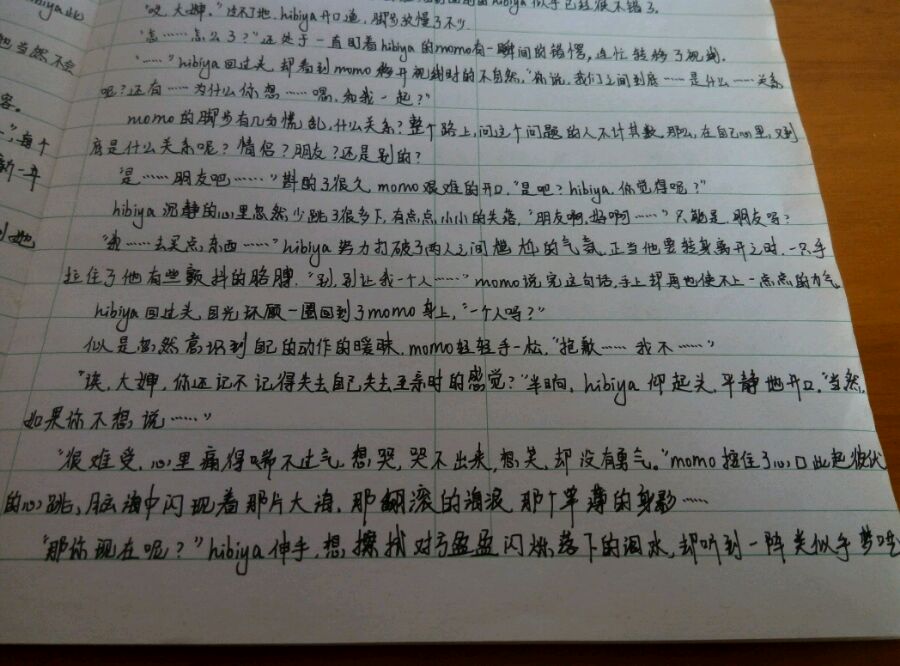 hibiya 似乎已经很不错了.
"哎, 大婶." 过不了地. hibiya 开口道, 脚步放慢了不少.
"怎……怎么了?" 还处于一直盯着 hibiya 的 momo 有一瞬间的错愕, 连忙转移了视线.
"……" hibiya 回过头, 却看到 momo 移开视线时的不自然, "你说, 我们之间到底……是什么……关系
呢? 还有……为什么你想……嗯, 和我一起?"
momo 的脚步有几分慌乱, 什么关系? 整个路上, 问这个问题的人不计其数, 那么, 在自己心里, 又到
底是什么关系呢? 情侣? 朋友? 还是别的?
"是……朋友吧……" 斟酌了很久 momo 艰难的开口, "是吧? hibiya, 你觉得呢?"
hibiya 沉静的心里忽然少跳了很多下, 有点点小小的失落, "朋友啊, 好啊……" 只能是朋友吗?
"我……去买点东西……" hibiya 努力打破了两人之间尴尬的气氛, 正当他要转身离开之时, 一只手
拉住了他有些颤抖的胳膊, "别, 别让我一个人……" momo 说完这句话, 手上却再也使不上一点点的力气
hibiya 回过头, 目光环顾一圈回到了 momo 身上, "一个人吗?"
似是忽然意识到自己的动作的暧昧, momo 轻轻手一松, "抱歉……我不……"
"诶, 大婶, 你还记不记得失去自己失去至亲时的感觉?" 半晌, hibiya 仰起头, 平静地开口, "当然,
如果你不想说……"
"很难受, 心里痛得喘不过气, 想哭, 哭不出来, 想笑, 却没有勇气。" momo 按住了心口此起彼伏
的心跳, 脑海中闪现着那片大海, 那翻滚的海浪, 那个单薄的身影……
"那你现在呢?" hibiya 伸手, 想擦拭对方盈盈闪烁落下的泪水, 却听到一阵类似乎梦呓